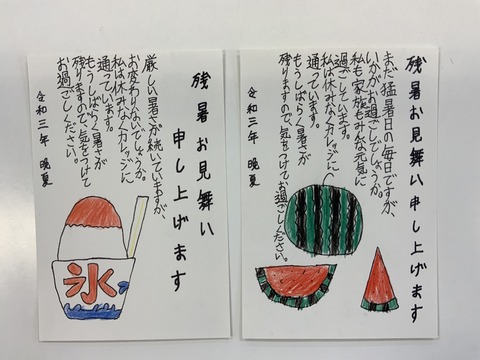 残暑お見舞い
申し上げます
厳しい暑さが続いていますが、
お変わりないでしょうか。
私は休みなくカレッジに
通っています。
もうしばらく暑さが
残りますので、気をつけて
お過ごしください。
令和三年 晩夏
氷
残暑お見舞い申し上げます
まだ猛暑日の毎日ですが、
いかがお過ごしでしょうか。
私も家族もみんな元気に
過ごしています。
私は休みなくカレッジに
通っています。
もうしばらく暑さが
残りますので、気をつけてお過ごしください。
令和三年 晩夏